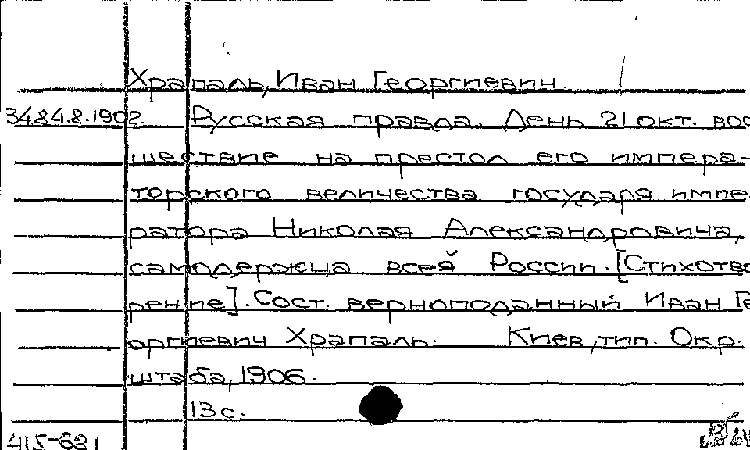 Храпаль, Иван Георгиевич
3484.8.1902 Русская правда. День 21 окт. вос
шествие на престол его импера-
торского величества государя импе
ратора Николая Александровича,
самодержца всей России. [Стихотво
рение]. Сост. верноподданный Иван Ге
оргиевич Храпаль. Киев, тип. Окр.
штаба, 1906.
13 с.
415-631